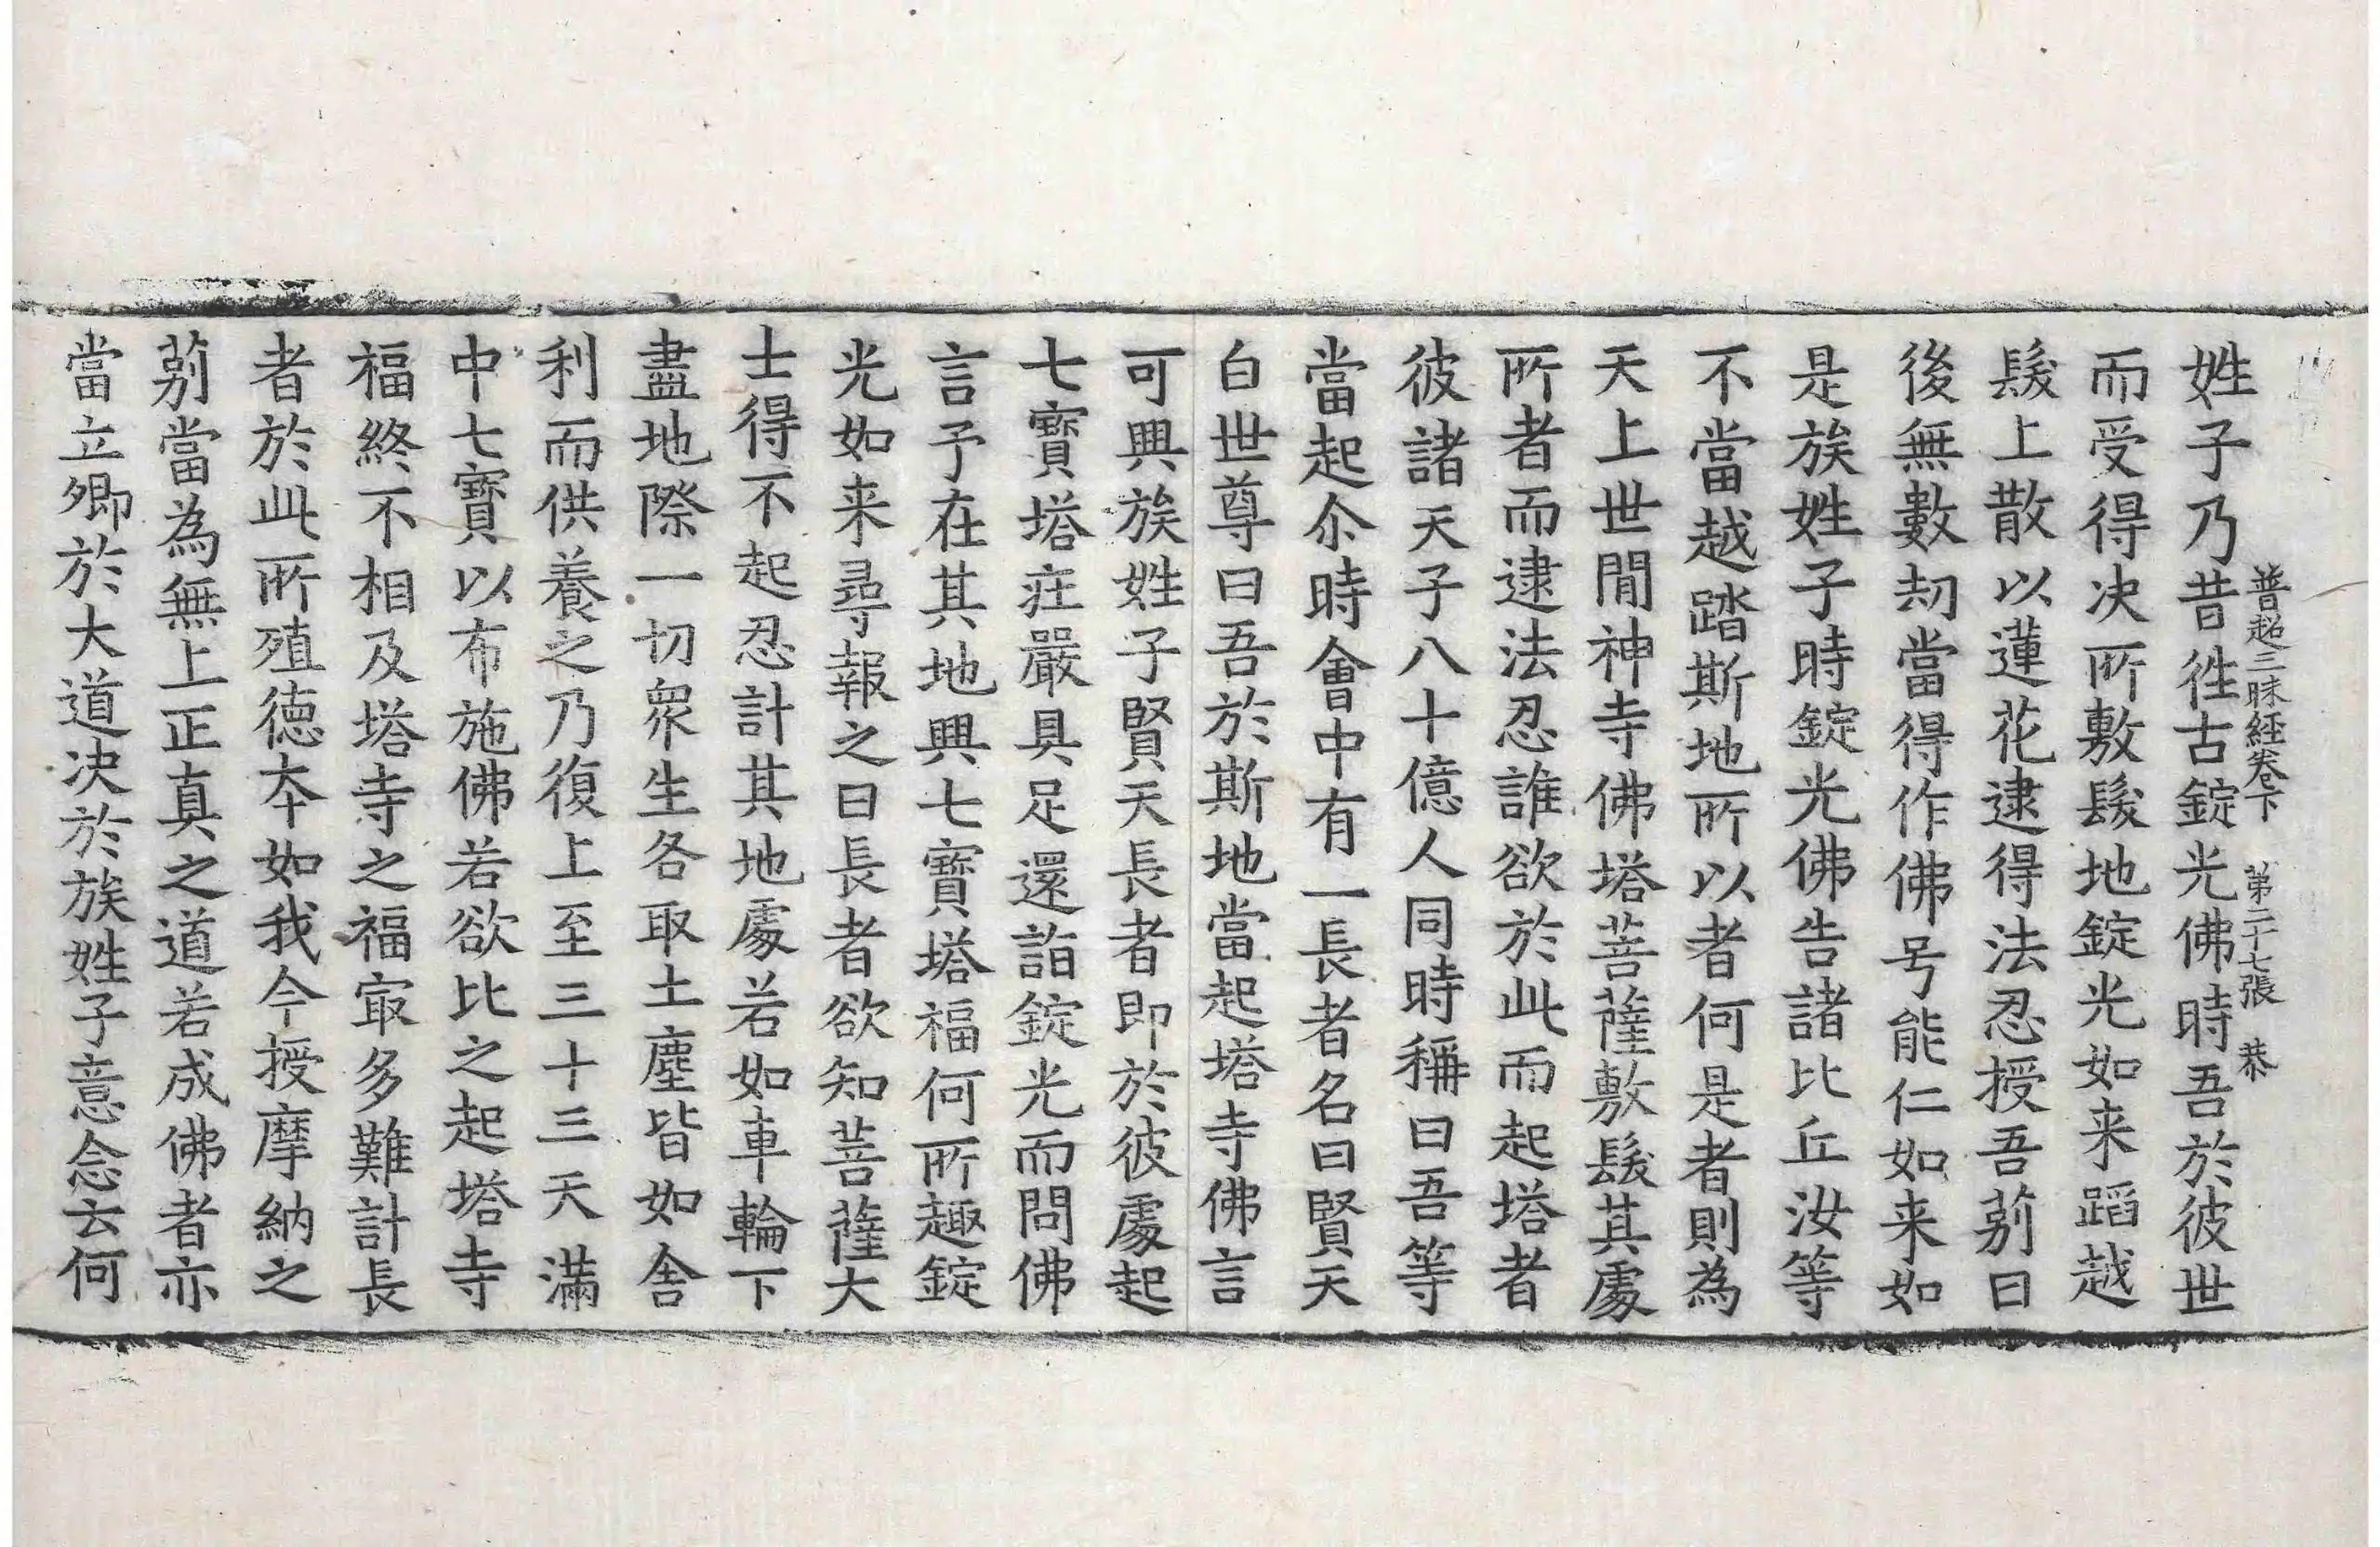 普超三昧經卷下　第二十七張　恭
姓子乃昔徃古錠光佛時吾於彼世
而受得决所敷髮地錠光如来蹈越
髮上散以蓮花逮得法忍授吾莂曰
後無數劫當得作佛号能仁如来如
是族姓子時錠光佛告諸比丘汝等
不當越踏斯地所以者何是者則為
天上世閒神寺佛塔菩薩敷髮其處
所者而逮法忍誰欲於此而起塔者
彼諸天子八十億人同時稱曰吾等
當起尒時會中有一長者名曰賢天
白世尊曰吾於斯地當起塔寺佛言
可興族姓子賢天長者即於彼處起
七寶塔莊嚴具足還詣錠光而問佛
言予在其地興七寶塔福何所趣錠
光如来尋報之曰長者欲知菩薩大
士得不起忍計其地處若如車輪下
盡地際一切衆生各取土塵皆如舍
利而供養之乃復上至三十三天滿
中七寶以布施佛若欲比之起塔寺
福終不相及塔寺之福㝡多難計長
者於此所殖德夲如我今授摩納之
莂當為無上正真之道若成佛者亦
當立卿於大道决於族姓子意念云何